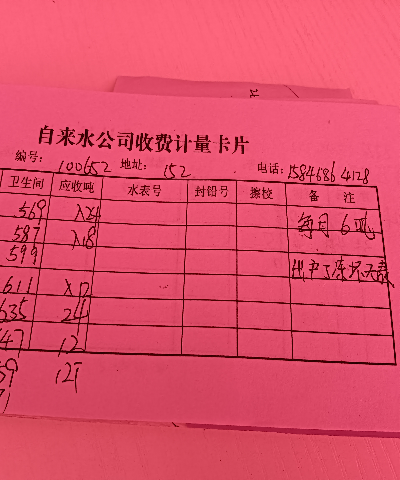 自来水公司收费计量卡片
编号: 100652 地址: 152 电话: 15846864128
卫生间 应收吨 水表号 封铅号 擦校 备 注
569 入24 每月6吨
587 入18
599
611 入12
635 24
47 12
59 12T